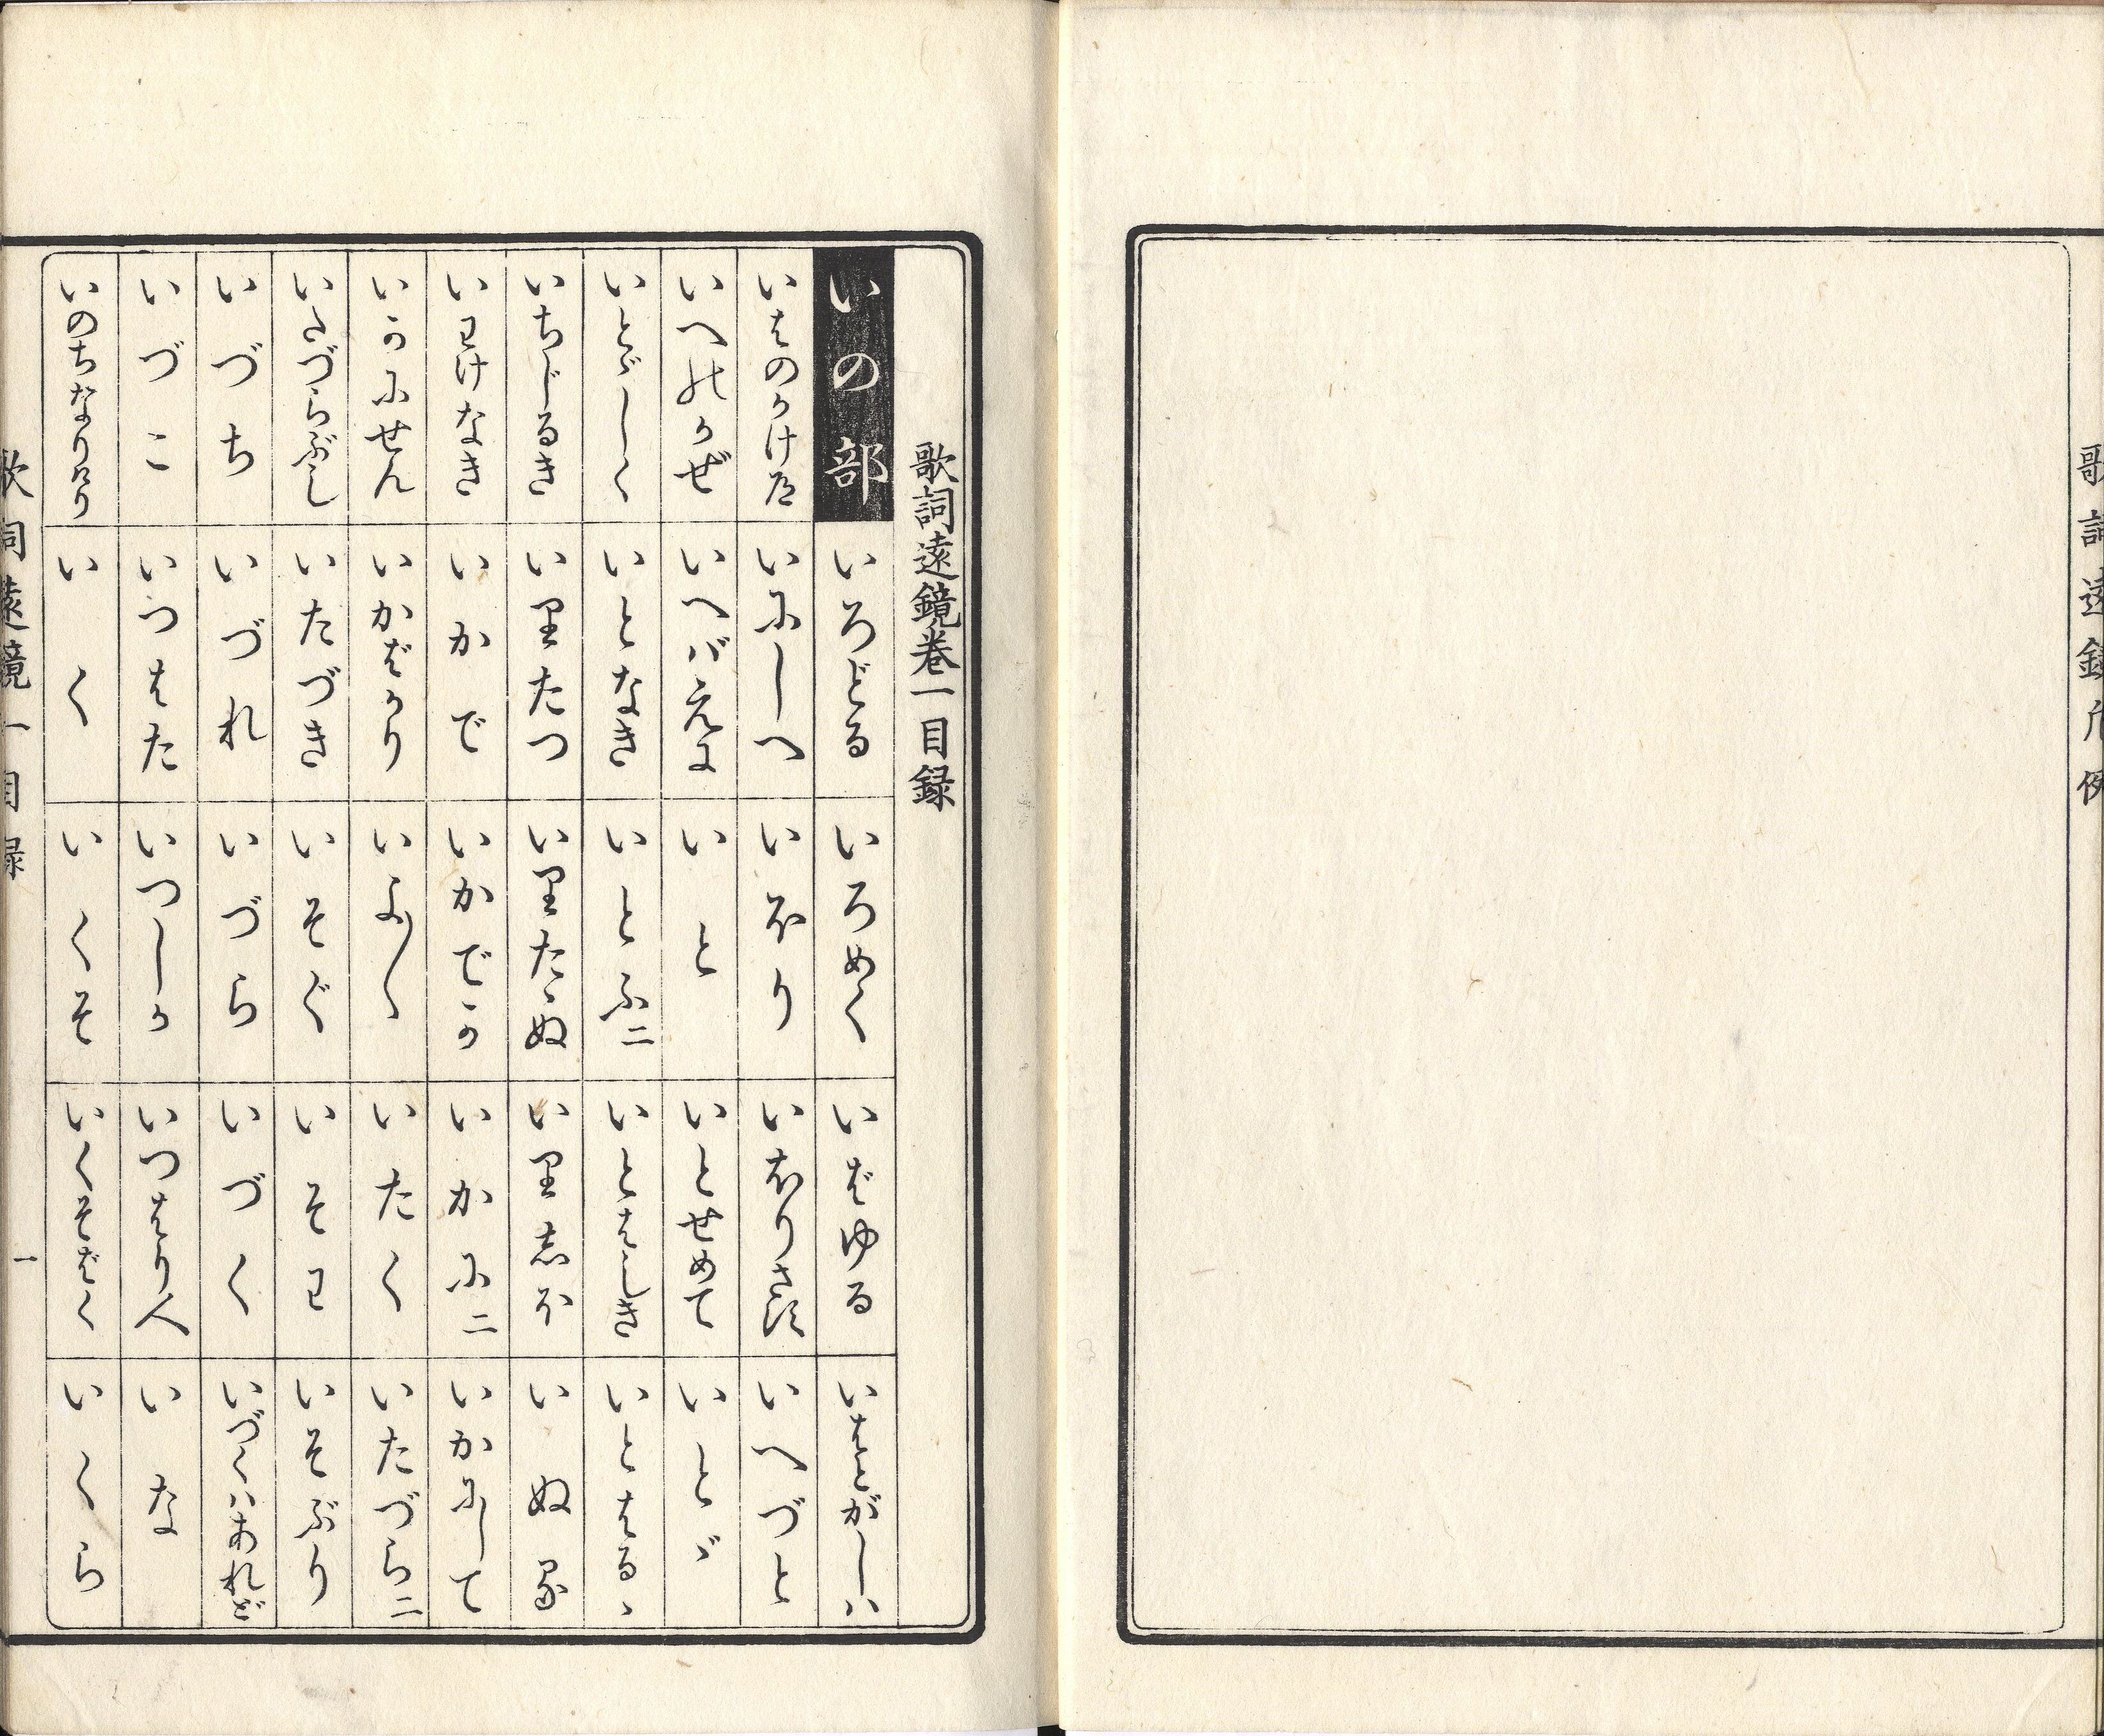 歌詞遠鏡凡例
歌詞遠鏡巻一目録
いの部 いろどる いろめく いばゆる いはとがしハ
いはのかけ道 いにしへ いほり いほりさす いへづと
いへのかぜ いへバえに いと いとせめて いとゞ
いとゞしく いとなき いとふ二 いとはしき いとはるゝ
いちじるき いりたつ いりたゝぬ いりしほ いぬる
いわけなき いかで いかでか いかに二 いかにして
いかにせん いかばかり いよ〳〵 いたく いたづら二
いたづらぶし いたづき いそぐ いそわ いそぶり
いづち いづれ いづら いづく いづくハあれど
いづこ いつはた いつしか いつはり人 いな
いのちなりけり いく いくそ いくそばく いくら
歌詞遠鏡一目録 一